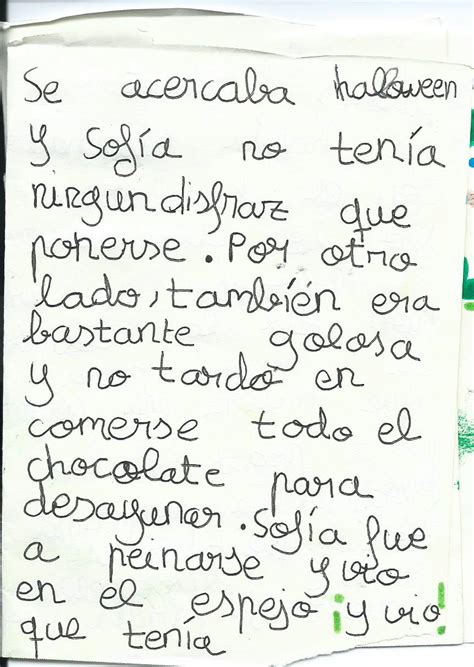 Se acercaba halloween
y Sofía no tenía
ningun disfraz que
ponerse. Por otro
lado, también era
bastante golosa
y no tardó en
comerse todo el
chocolate para
desayunar. Sofía fue
a peinarse y vio
en el espejo ¡y vio!
que tenía